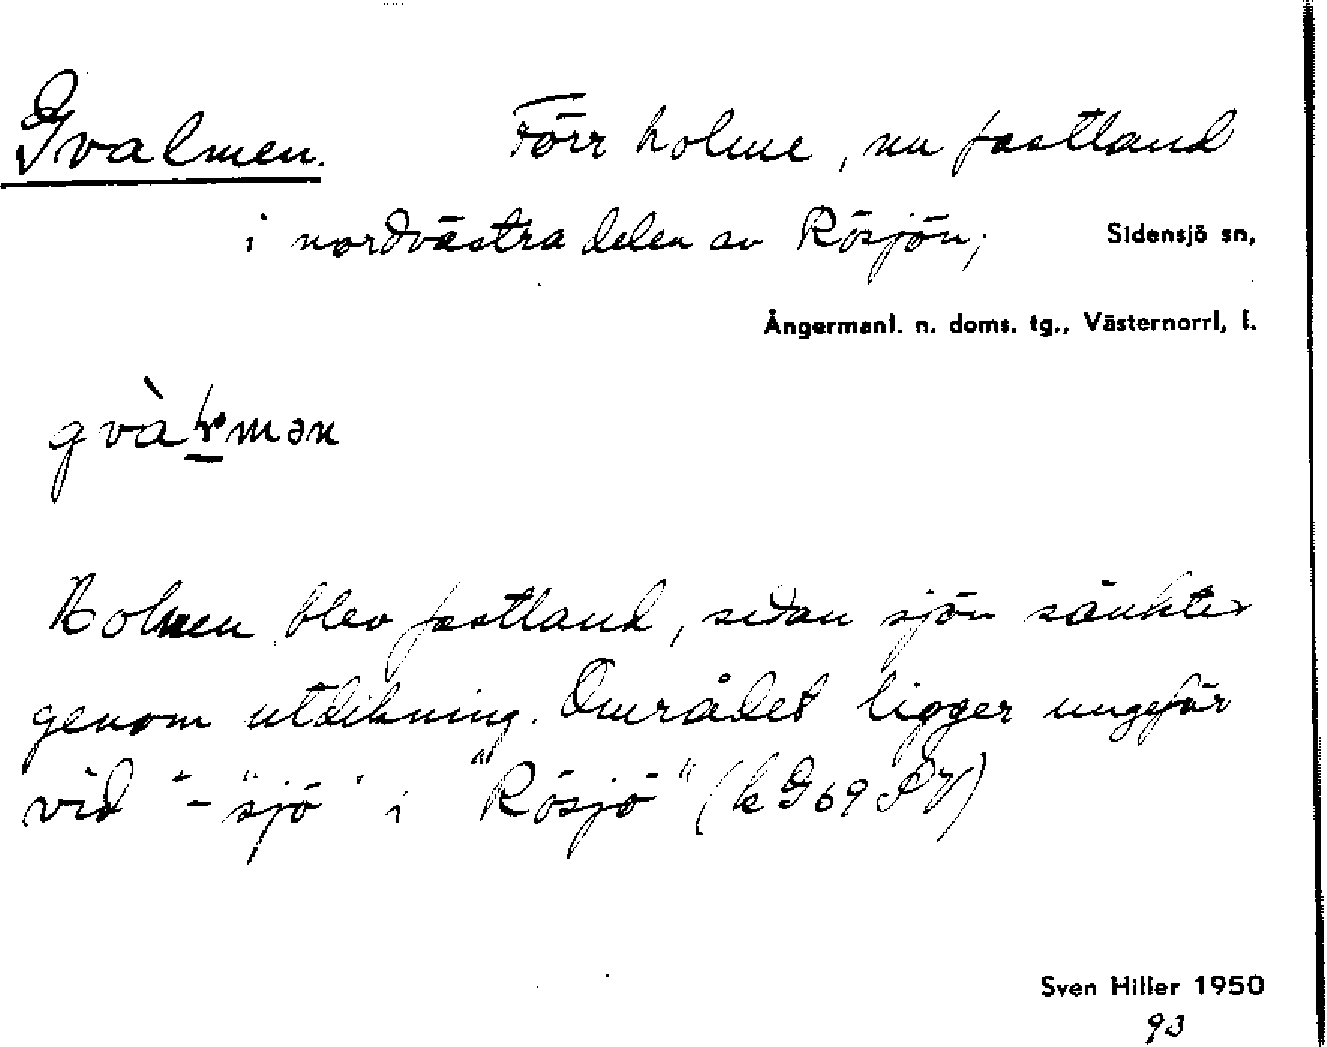 Gvalmen. Förr holme, nu fastland
i nordvästra delen av Rösjön; Sidensjö sn,
Ångermanl. n. doms. tg., Västernorrl. l.
Holmen blev fastland, sedan sjön sänkts
genom utdikning. Området ligger ungefär
vid "-sjö" i "Rösjö" (k G69 P7)
Sven Hiller 1950
93